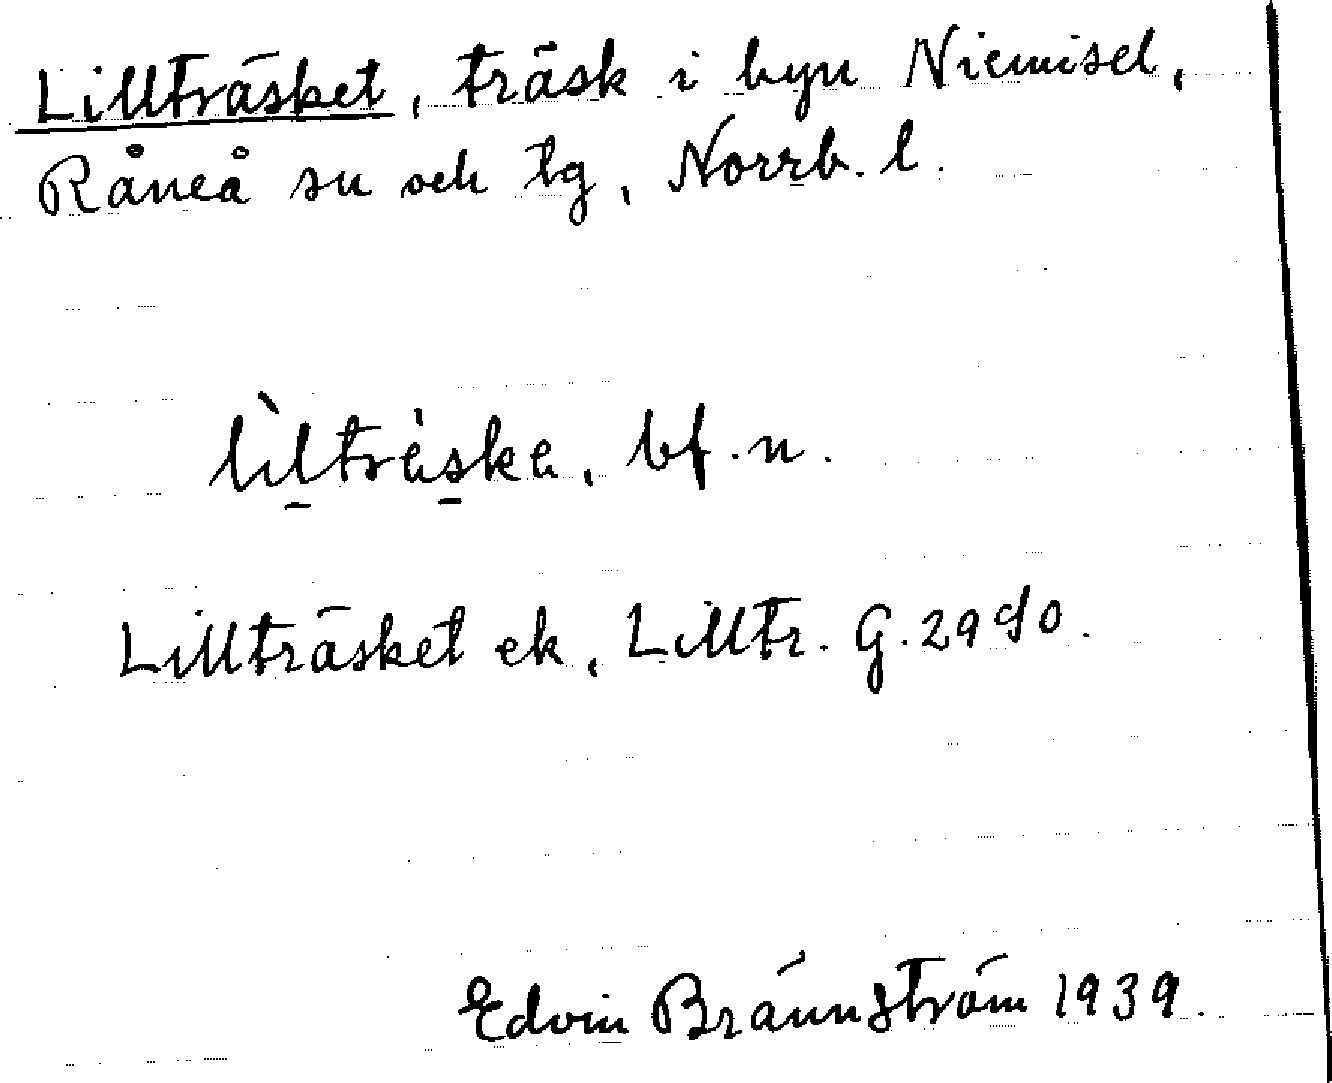 Lillträsket, träsk i byn Niemisel,
Råneå sn och tg, Norrb. l.
lìl̠tràs̠ka, bf. n.
Lillträsket ek, Lilltr. G. 2990.
Edvin Brännström 1939.